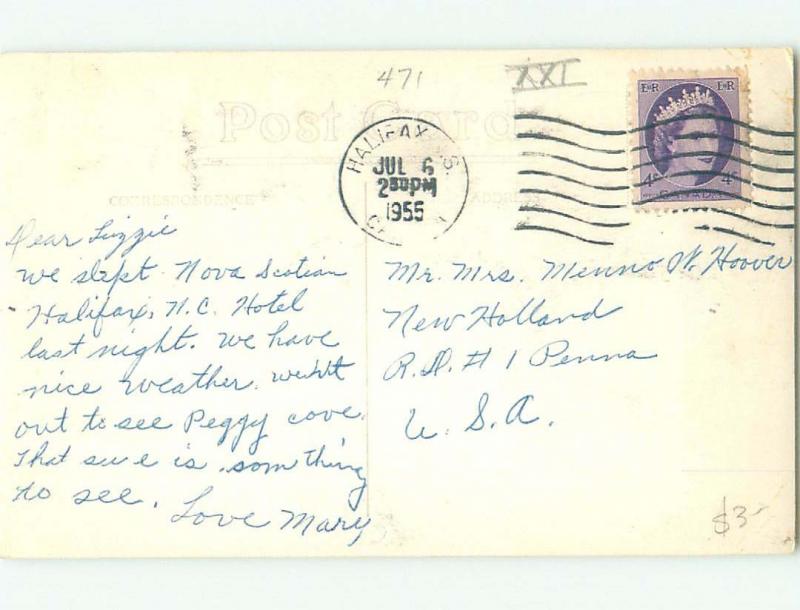 471
XXI
Post Card
ER ER
HALIFAX N.S.
JUL 6
2 30 PM
1955
4c 4c
CANADA
CORRESPONDENCE
ADDRESS
Dear Lizzie
we slept Nova Scotian
Halifax, N.C. Hotel
last night. we have
nice weather. went
out to see Peggy cove.
That sure is something
to see.
Love Mary
Mr. Mrs. Menno W. Hoover
New Holland
R.D. # 1 Penna
U.S.A.
$3-